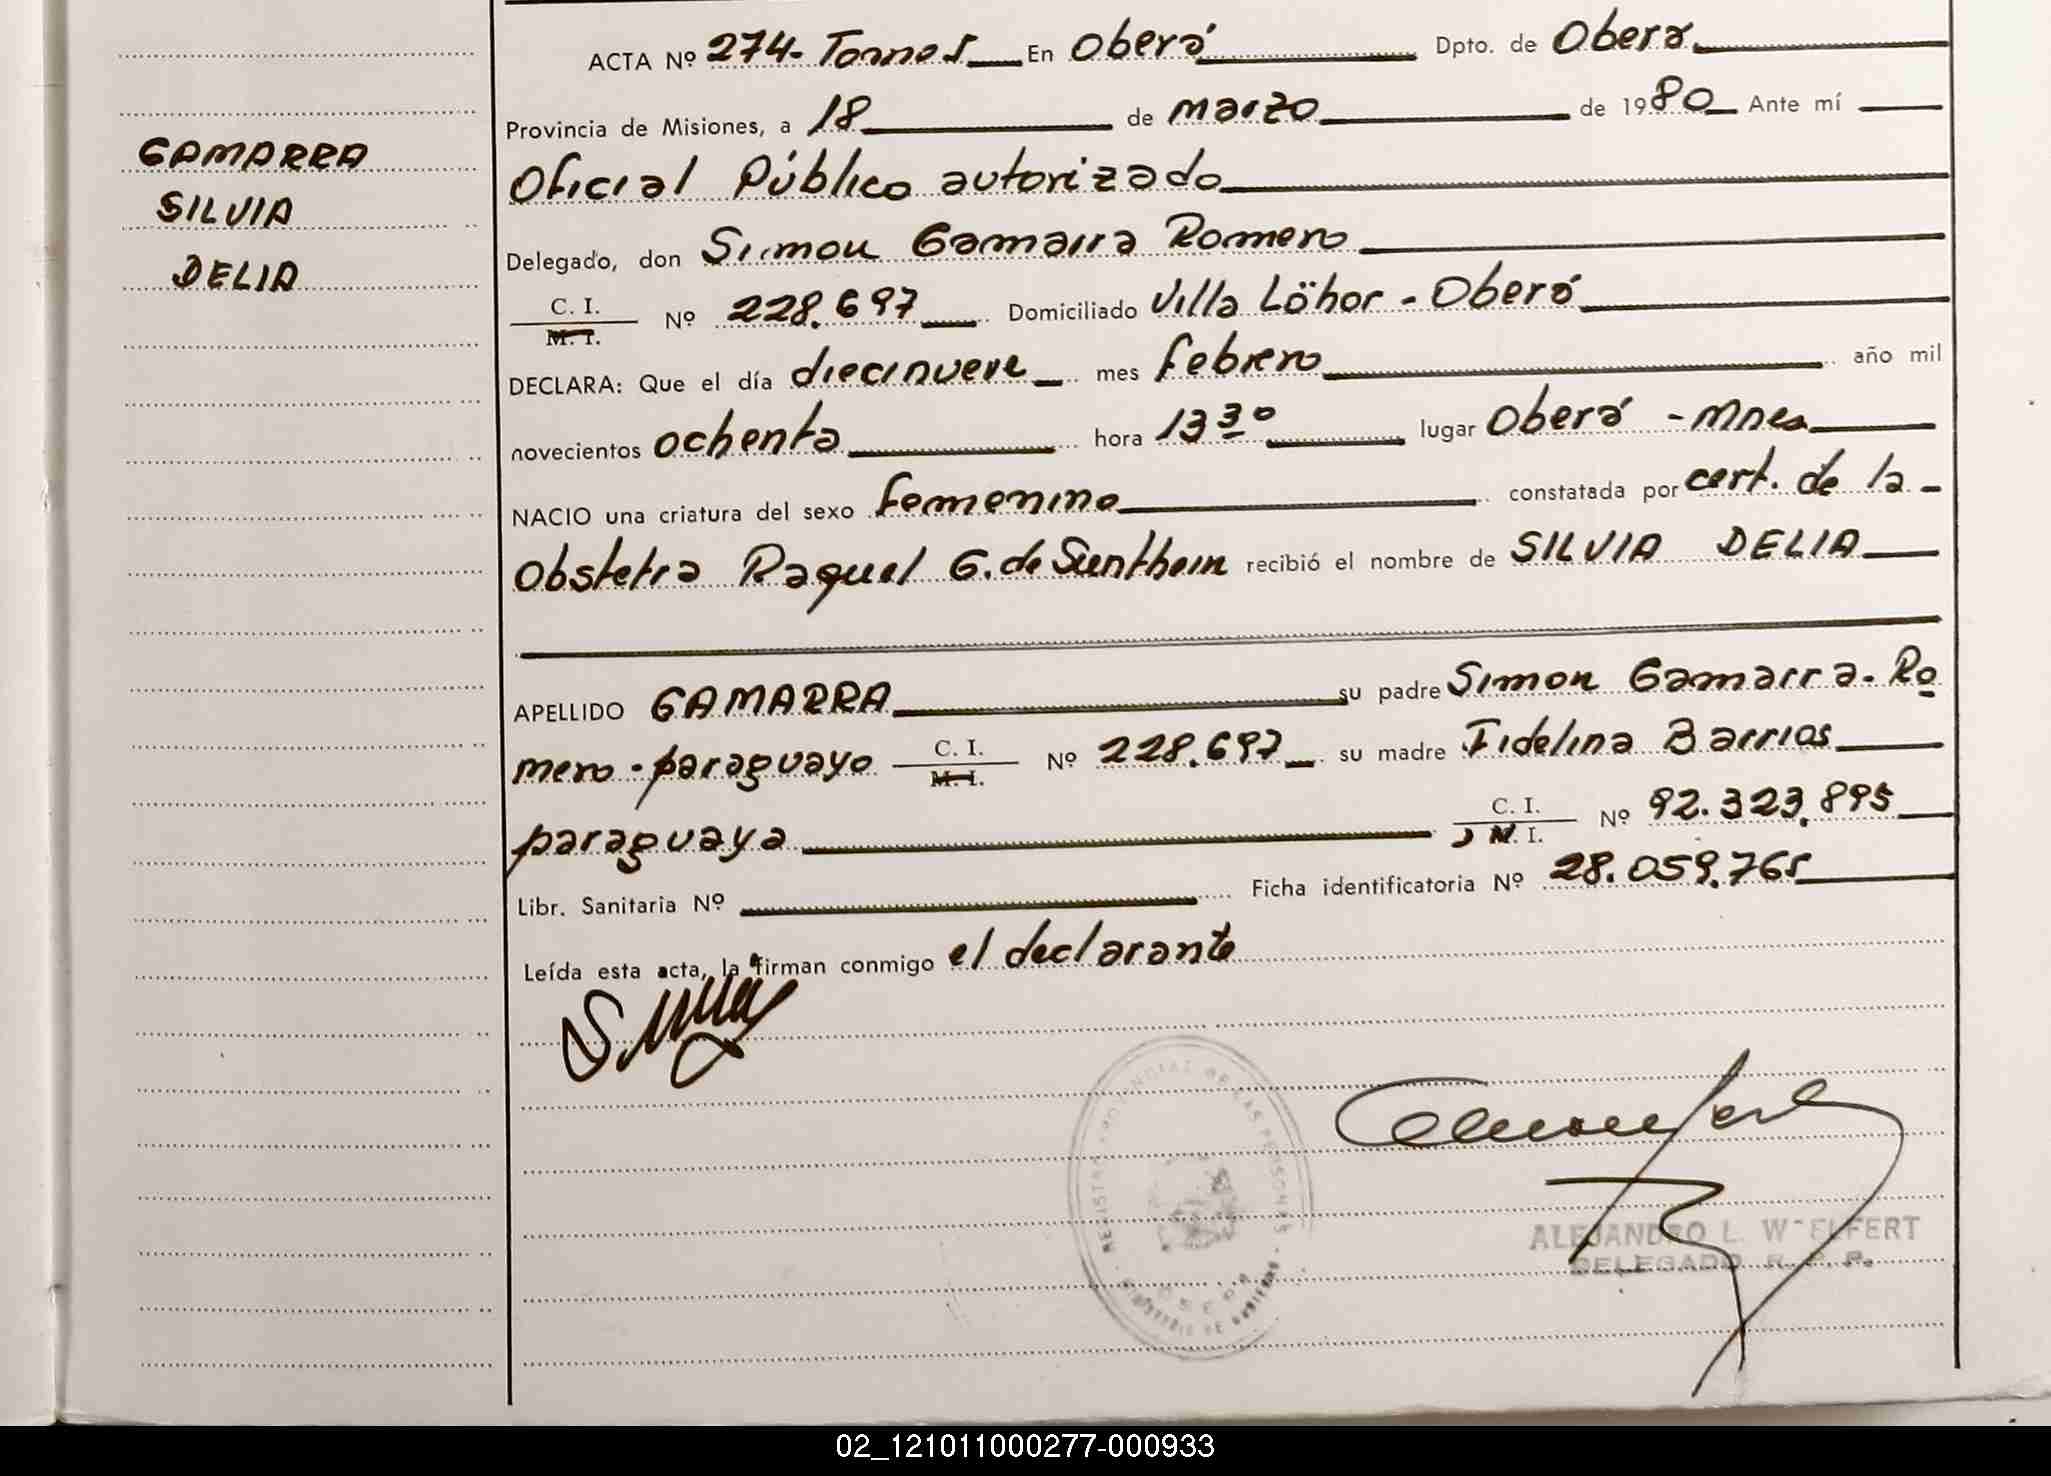 ACTA Nº 274- Tomo I En Oberá Dpto. de Oberá
Provincia de Misiones, a 18 de marzo de 1980 Ante mí
GAMARRA
SILVIA
DELIA
Oficial Público autorizado
Delegado, don Simon Gamarra Romero
C. I.
M. I.
Nº 228.697 Domiciliado Villa Löhor - Oberá
DECLARA: Que el día diecinueve mes febrero año mil
novecientos ochenta hora 13 30 lugar Oberá - Mnes
NACIO una criatura del sexo femenino constatada por cert. de la
Obstetra Raquel G. de recibió el nombre de SILVIA DELIA
APELLIDO GAMARRA su padre Simon Gamarra Ro
mero - paraguayo C. I. M. I. Nº 228.697 su madre Fidelina Barrios
paraguaya C. I. M. I. Nº 92.323.895
Libr. Sanitaria Nº Ficha identificatoria Nº 28.059.765
Leída esta acta, la firman conmigo el declarante
ALEJANDRO L.
DELEGADO R. P. P.
02_121011000277-000933